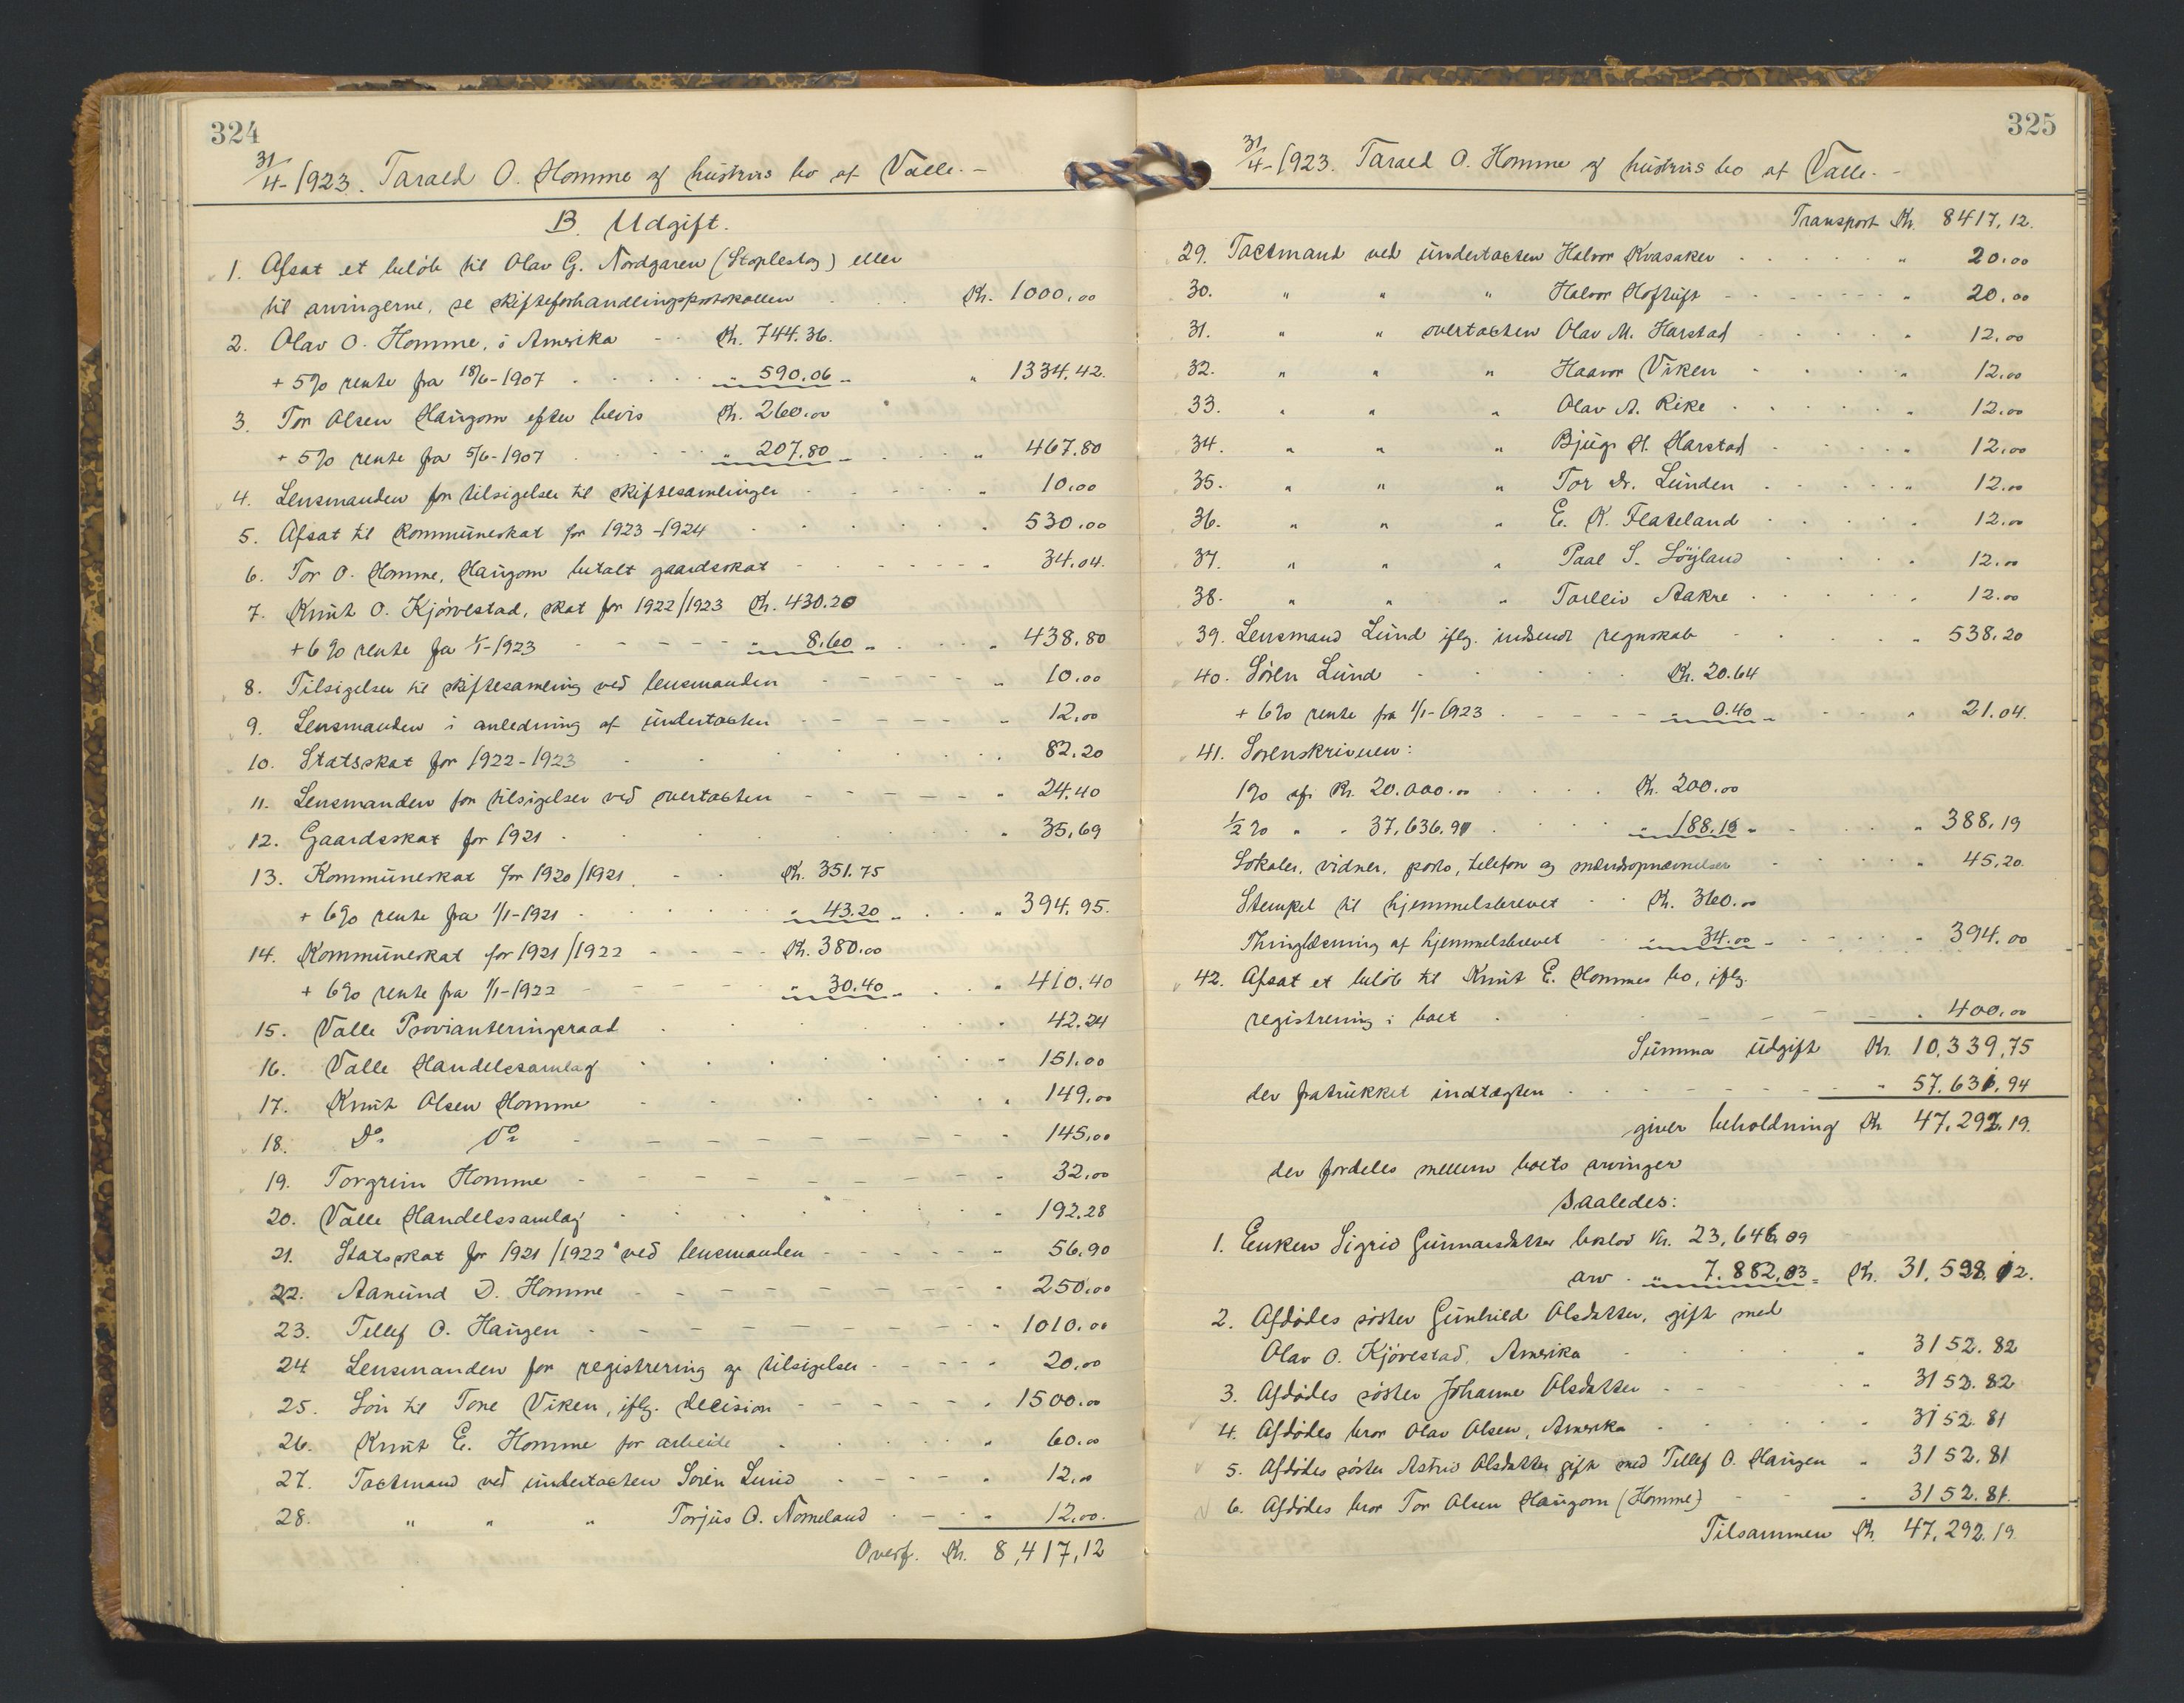 324
31/4-1923. Tarald O. Homme og hustrus bo af Valle.-
B. Udgift.
1. Afsat et beløb til Olav G. Nordgaren (Stopleslog) eller
til arvingerne, se skifteforhandlingsprotokollen . . . Kr. 1000.00
2. Olav O. Homme, i Amerika - - Kr. 744.36.
+ 5% rente fra 18/6-1907 . . . . . " 590.06 - " 1334.42.
3. Tor Olsen Haugom efter bevis Kr. 260.00
+ 5% rente fra 5/6-1907 . . . . " 207.80 - . . . " 467.80
4. Lensmanden for tilsigelse til skiftesamlinger - - - - - " 10.00
5. Afsat til kommuneskat for 1923-1924 . . . . . . " 530.00
6. Tor O. Homme, Haugom betalt gaardsskat - - - - - " 34.04.
7. Knut O. Kjørvestad, skat for 1922/1923 Kr. 430.20
+ 6% rente fra 1/1-1923 - - - - - " 8.60 - . . . " 438.80
8. Tilsigelse til skiftesamling ved lensmanden - - - - - " 10.00
9. Lensmanden i anledning af undertakten - - - - - " 12.00
10. Statsskat for 1922-1923 - . . . . . . 82.20
11. Lensmanden for tilsigelser ved overtakten - - - - - " 24.40
12. Gaardsskat for 1921 . . . . . . . . " 35.69
13. Kommuneskat for 1920/1921. - - Kr. 351.75
+ 6% rente fra 1/1-1921 . . . . . " 43.20 - . . . " 394.95.
14. Kommuneskat for 1921/1922 - - - - Kr. 380.00
+ 6% rente fra 1/1-1922 - - - - - " 30.40 - . . . " 410.40
15. Valle Provianteringsraad . . . . . . . . " 42.24
16. Valle Handelssamlag . . . . . . . . " 151.00
17. Knut Olsen Homme . . . . . . . . " 149.00
18. Do Do - - - - - - - - - " 145.00
19. Torgrim Homme - - - - - - - - - - 32.00
20. Valle Handelssamlag . . . . . . . . " 192.28
21. Statsskat for 1921/1922 ved lensmanden - - - - - - " 56.90
22. Aanund D. Homme - - - - - - - - - " 250.00
23. Tellef O. Haugen - - - - - - - - - " 1010.00
24 Lensmanden for registrering og tilsigelser - - - - - " 20.00
25. Løn til Tone Viken, iflg. decision - - - - - - " 1500.00
26. Knut E. Homme for arbeide . . . . . . " 60.00
27. Tactmand ved undertacten Søren Lund . - - - - " 12.00
28. " " " Torjus O. Nomeland . - . " 12.00.
Overf. Kr. 8,417,12
325
31/4-1923. Tarald O. Homme og hustrus bo af Valle. -
Transport Kr. 8417,12.
29. Tactmand ved undertacten Halvor Kvasaker . . . . . . " 20.00
30. " " " Halvor Hoftuft - - - - - - - " 20.00
31. " " overtacten Olav M. Harstad . . . . . " 12.00
32. " " " Haavor Viken . . . . . " 12.00
33. " " " Olav A. Rike . . . . . . " 12.00
34. " " " Bjug H. Harstad . . . . . " 12.00
35. " " " Tor Dr. Lunden . . . . . . " 12.00
36. " " " E. K. Flateland . . . . . " 12.00
37. " " " Paal S. Løyland . . . . . 12.00
38. " " " Torleiv Aakre . . . . . . 12.00
39. Lensmand Lund iflg. indsendt regnskab - . . . . " 538.20
40. Søren Lund . . . . . . . Kr. 20.64
+ 6% rente fra 1/1-1923 . - - - - " 0.40 - - - - " 21.04.
41. Sorenskriveren:
1% af Kr. 20.000.00 . . . . Kr. 200.00
1/2% " " 37,636.91 . . . . " 188.19 - - . . . " 388,19
Lokaler, vidner, porto, telefon og mændsopnævnelser - . . . . " 45.20.
Stempel til hjemmelsbrevet . . Kr. 360.00
Thinglæsning af hjemmelsbrevet . . " 34.00 - . . . . " 394.00
42. Afsat et beløb til Knut E. Hommes bo, iflg.
registrering i boet . . . - - - - " 400.00
Summa udgift Kr. 10,339,75
der fratrukket indtægten . . . - - - - - - " 57.631.94
giver beholdning Kr 47.292.19.
der fordeles mellem boets arvinger
saaledes:
1. Enken Sigrid Gunnarsdatter boslod Kr. 23,646.09
arv . " 7.882.03 = Kr. 31.528.12.
2. Afdødes søster Gunhild Olsdatter, gift med
Olav O. Kjørvestad, Amerika - . . . . " 3152.82
3. Afdødes søster Johanne Olsdatter - - - - - " 3152.82
4. Afdødes bror Olav Olsen, Amerika . . . . . " 3152.81
5. Afdødes søster Astrid Olsdatter gift med Tellef O. Haugen " 3152.81
6. Afdødes bror Tor Olsen Haugom (Homme) - - - " 3152.81.
Tilsammen Kr 47,292.19.